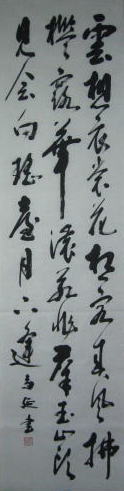 雲想衣裳花想容春風拂
檻露華濃若非羣玉山頭
見会向瑤臺月下逢 書